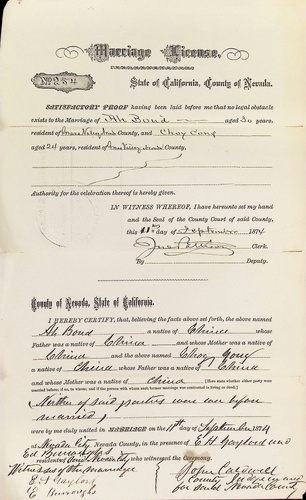 Marriage License.
No 254
State of California, County of Nevada.
SATISFACTORY PROOF having been laid before me that no legal obstacle
exists to the Marriage of Ah Bond aged 30 years,
resident of County, and Choy
aged 24 years, resident of County,
Authority for the celebration thereof is hereby given.
IN WITNESS WHEREOF, I have hereunto set my hand
and the Seal of the County Court of said County,
this 11th day of September 1874
Clerk.
By Deputy.
County of Nevada, State of California.
I HEREBY CERTIFY, that, believing the facts above set forth, the above named
Ah Bond a native of China whose
Father was a native of China and whose Mother was a native of
China and the above named Choy
a native of China whose Father was a native of China
and whose Mother was a native of China
Neither of said parties were ever before
married,
were by me duly united in MARRIAGE on the 11th of September 1874
at Nevada City, Nevada County, in the presence of E H Gaylord and
Ed Burroughs
resident of who witnessed the Ceremony.
Witness of the Marriage
E H Gaylord
E Burroughs
John Caldwell
County Judge in and
for said Nevada County